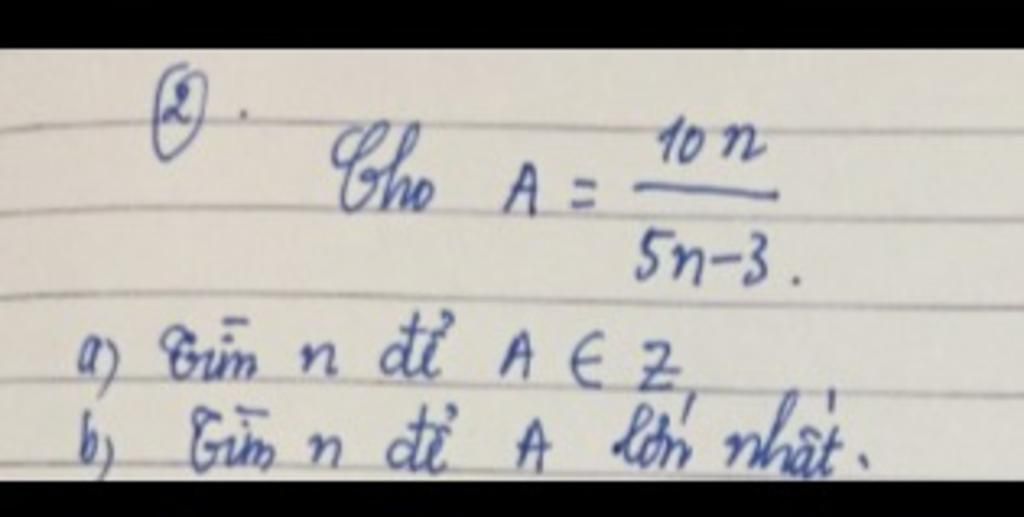 ②.
Cho A = 10n / 5n-3.
a) Tìm n để A ∈ Z
b) Tìm n để A lớn nhất.